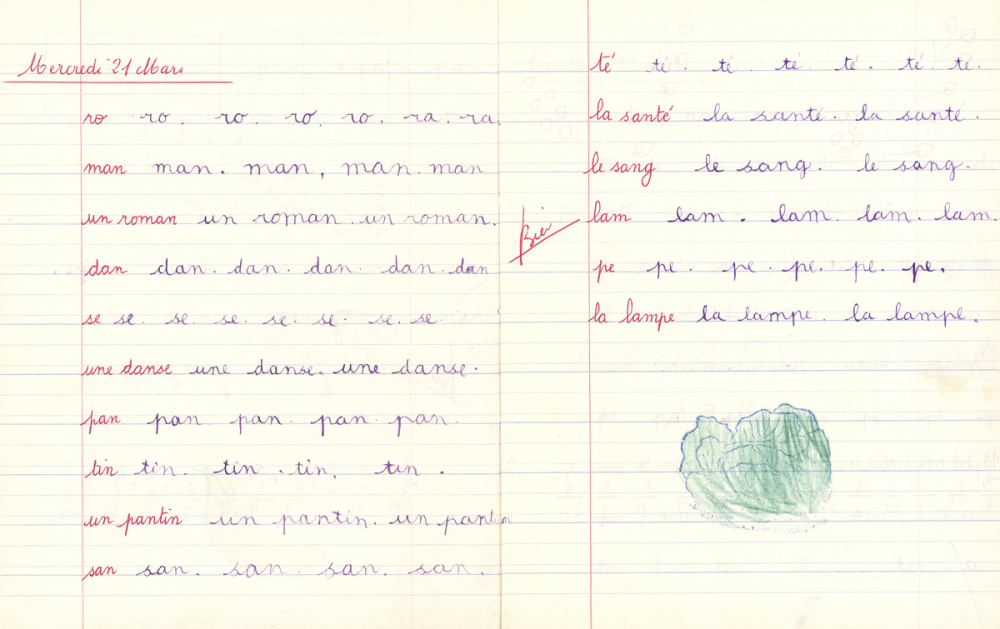 Mercredi 21 Mars
ro ro. ro. ro. ro. ra. ra.
man man. man, man. man
un roman un roman. un roman.
dan dan. dan. dan. dan. dan
se se. se. se. se. se. se. se
une danse une danse. une danse.
pan pan pan. pan. pan
tin tin. tin. tin. tin.
un pantin un pantin. un pantin
san san. san. san. san.
té té. té té. té. té. té.
la santé la santé. la santé.
le sang le sang. le sang.
Bien
lam lam. lam. lam. lam.
pe pe. pe. pe. pe. pe.
la lampe la lampe. la lampe.